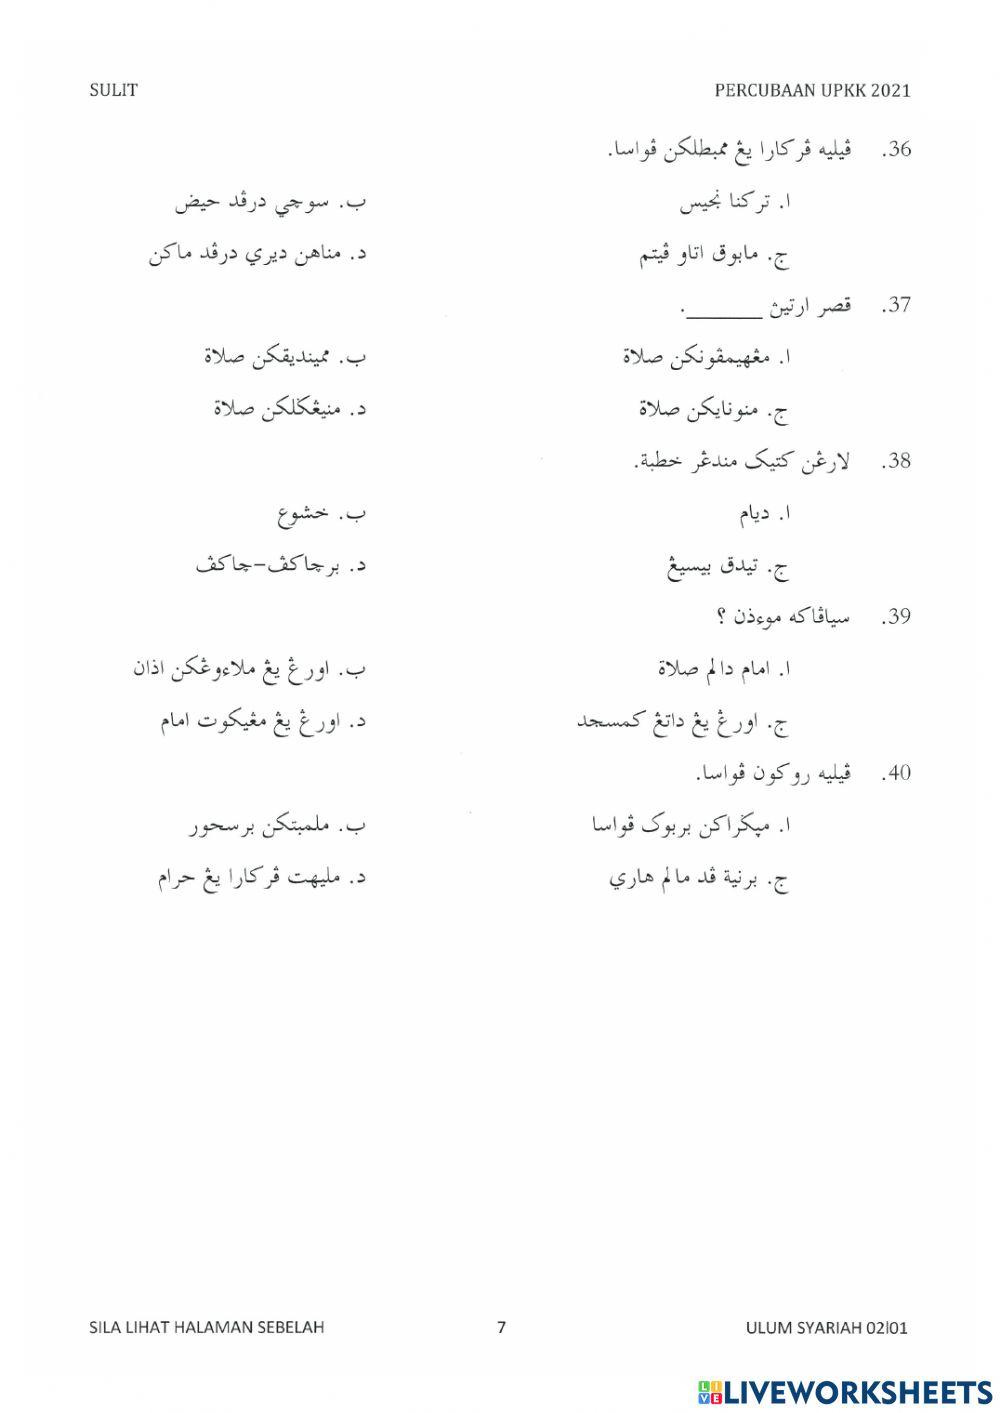 SULIT PERCUBAAN UPKK 2021
36. ڤيليه ڤركارا يڠ ممبطلكن ڤواسا.
ا. تركنا نجيس ب. سوچي درڤد حيض
ج. مابوق اتاو ڤيتم د. مناهن ديري درڤد ماكن
37. قصر ارتيڽ ______.
ا. مڠهيمڤونكن صلاة ب. ميمنديقكن صلاة
ج. منونايكن صلاة د. منيڠݢلكن صلاة
38. لارڠن كتيک مندڠر خطبة.
ا. ديام ب. خشوع
ج. تيدق بيسيڠ د. برچاكڤ-چاكڤ
39. سياڤاكه موءذن ؟
ا. امام دالم صلاة ب. اورڠ يڠ ملاءوڠكن اذان
ج. اورڠ يڠ داتڠ كمسجد د. اورڠ يڠ مڠيكوت امام
40. ڤيليه روكون ڤواسا.
ا. مڽݢراكن بربوک ڤواسا ب. ملمبتكن برسحور
ج. برنية ڤد مالم هاري د. مليهت ڤركارا يڠ حرام
SILA LIHAT HALAMAN SEBELAH 7 ULUM SYARIAH 02I01
LIVEWORKSHEETS